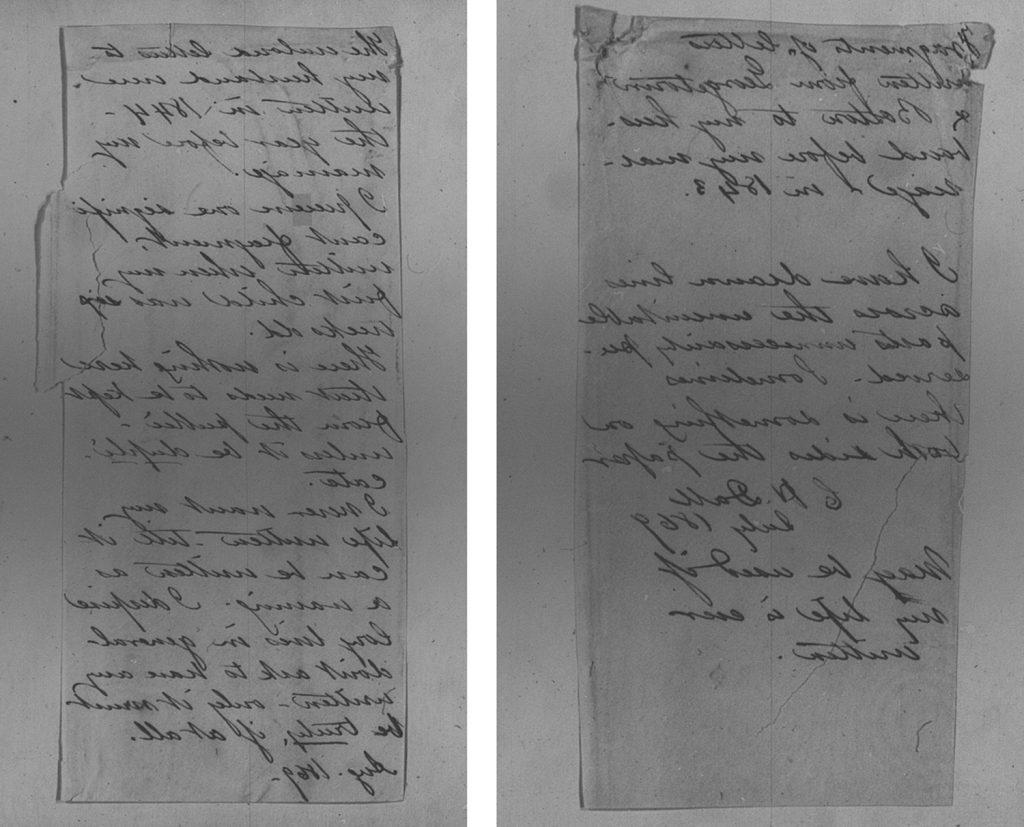 The enclosed letters to
my husband were
written in 1844 -
the year before my
marriage.
I preserve one signifi
cant fragment,
written when my
first child was six
weeks old.
There is nothing here
that needs to be kept
from the public -
unless it be dupli-
cate.
I never want my
life written - till it
can be written as
a warning. I despise
lives in general
don't ask to have any
written - only it must
be truly, if at all.
Aug. 1869.
Fragments of letters
written from Georgetown
& Boston to my hus-
band before my mar-
riage - in 1843.
I have drawn lines
across the unsuitable
parts unnecessarily pre-
served. Sometimes
there is something on
both sides the paper
C H Dall
July 1869
May be used if
my life is ever
written.